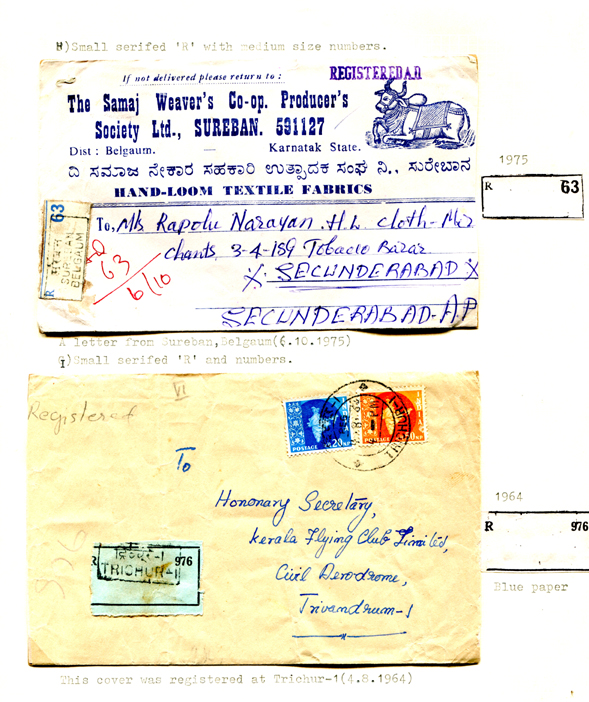 H)Small serifed 'R' with medium size numbers.
If not delivered please return to :
REGISTERED A.D
The Samaj Weaver's Co-op. Producer's
Society Ltd., SUREBAN. 591127
Dist : Belgaum. — Karnatak State.
ದಿ ಸಮಾಜ ನೇಕಾರ ಸಹಕಾರಿ ಉತ್ಪಾದಕ ಸಂಘ ನಿ., ಸುರೇಬಾನ
HAND-LOOM TEXTILE FABRICS
1975
R 63
R 63
SUREBAN
BELGAUM
63
6/10
To, M/s Rapolu Narayan. H.L. Cloth-Mer
chants, 3-4-189 Tobacco Bazar
X. SECUNDERABAD X
SECUNDERABAD-A.P
A letter from Sureban,Belgaum(6.10.1975)
I)Small serifed 'R' and numbers.
VI
Registered
POSTAGE 20 NP
POSTAGE NP
TRICHUR-1
To
Honorary Secretary,
Kerala Flying Club Limited,
Civil Aerodrome,
Trivandrum-1
R 976
TRICHUR-1
976
1964
R 976
Blue paper
This cover was registered at Trichur-1(4.8.1964)